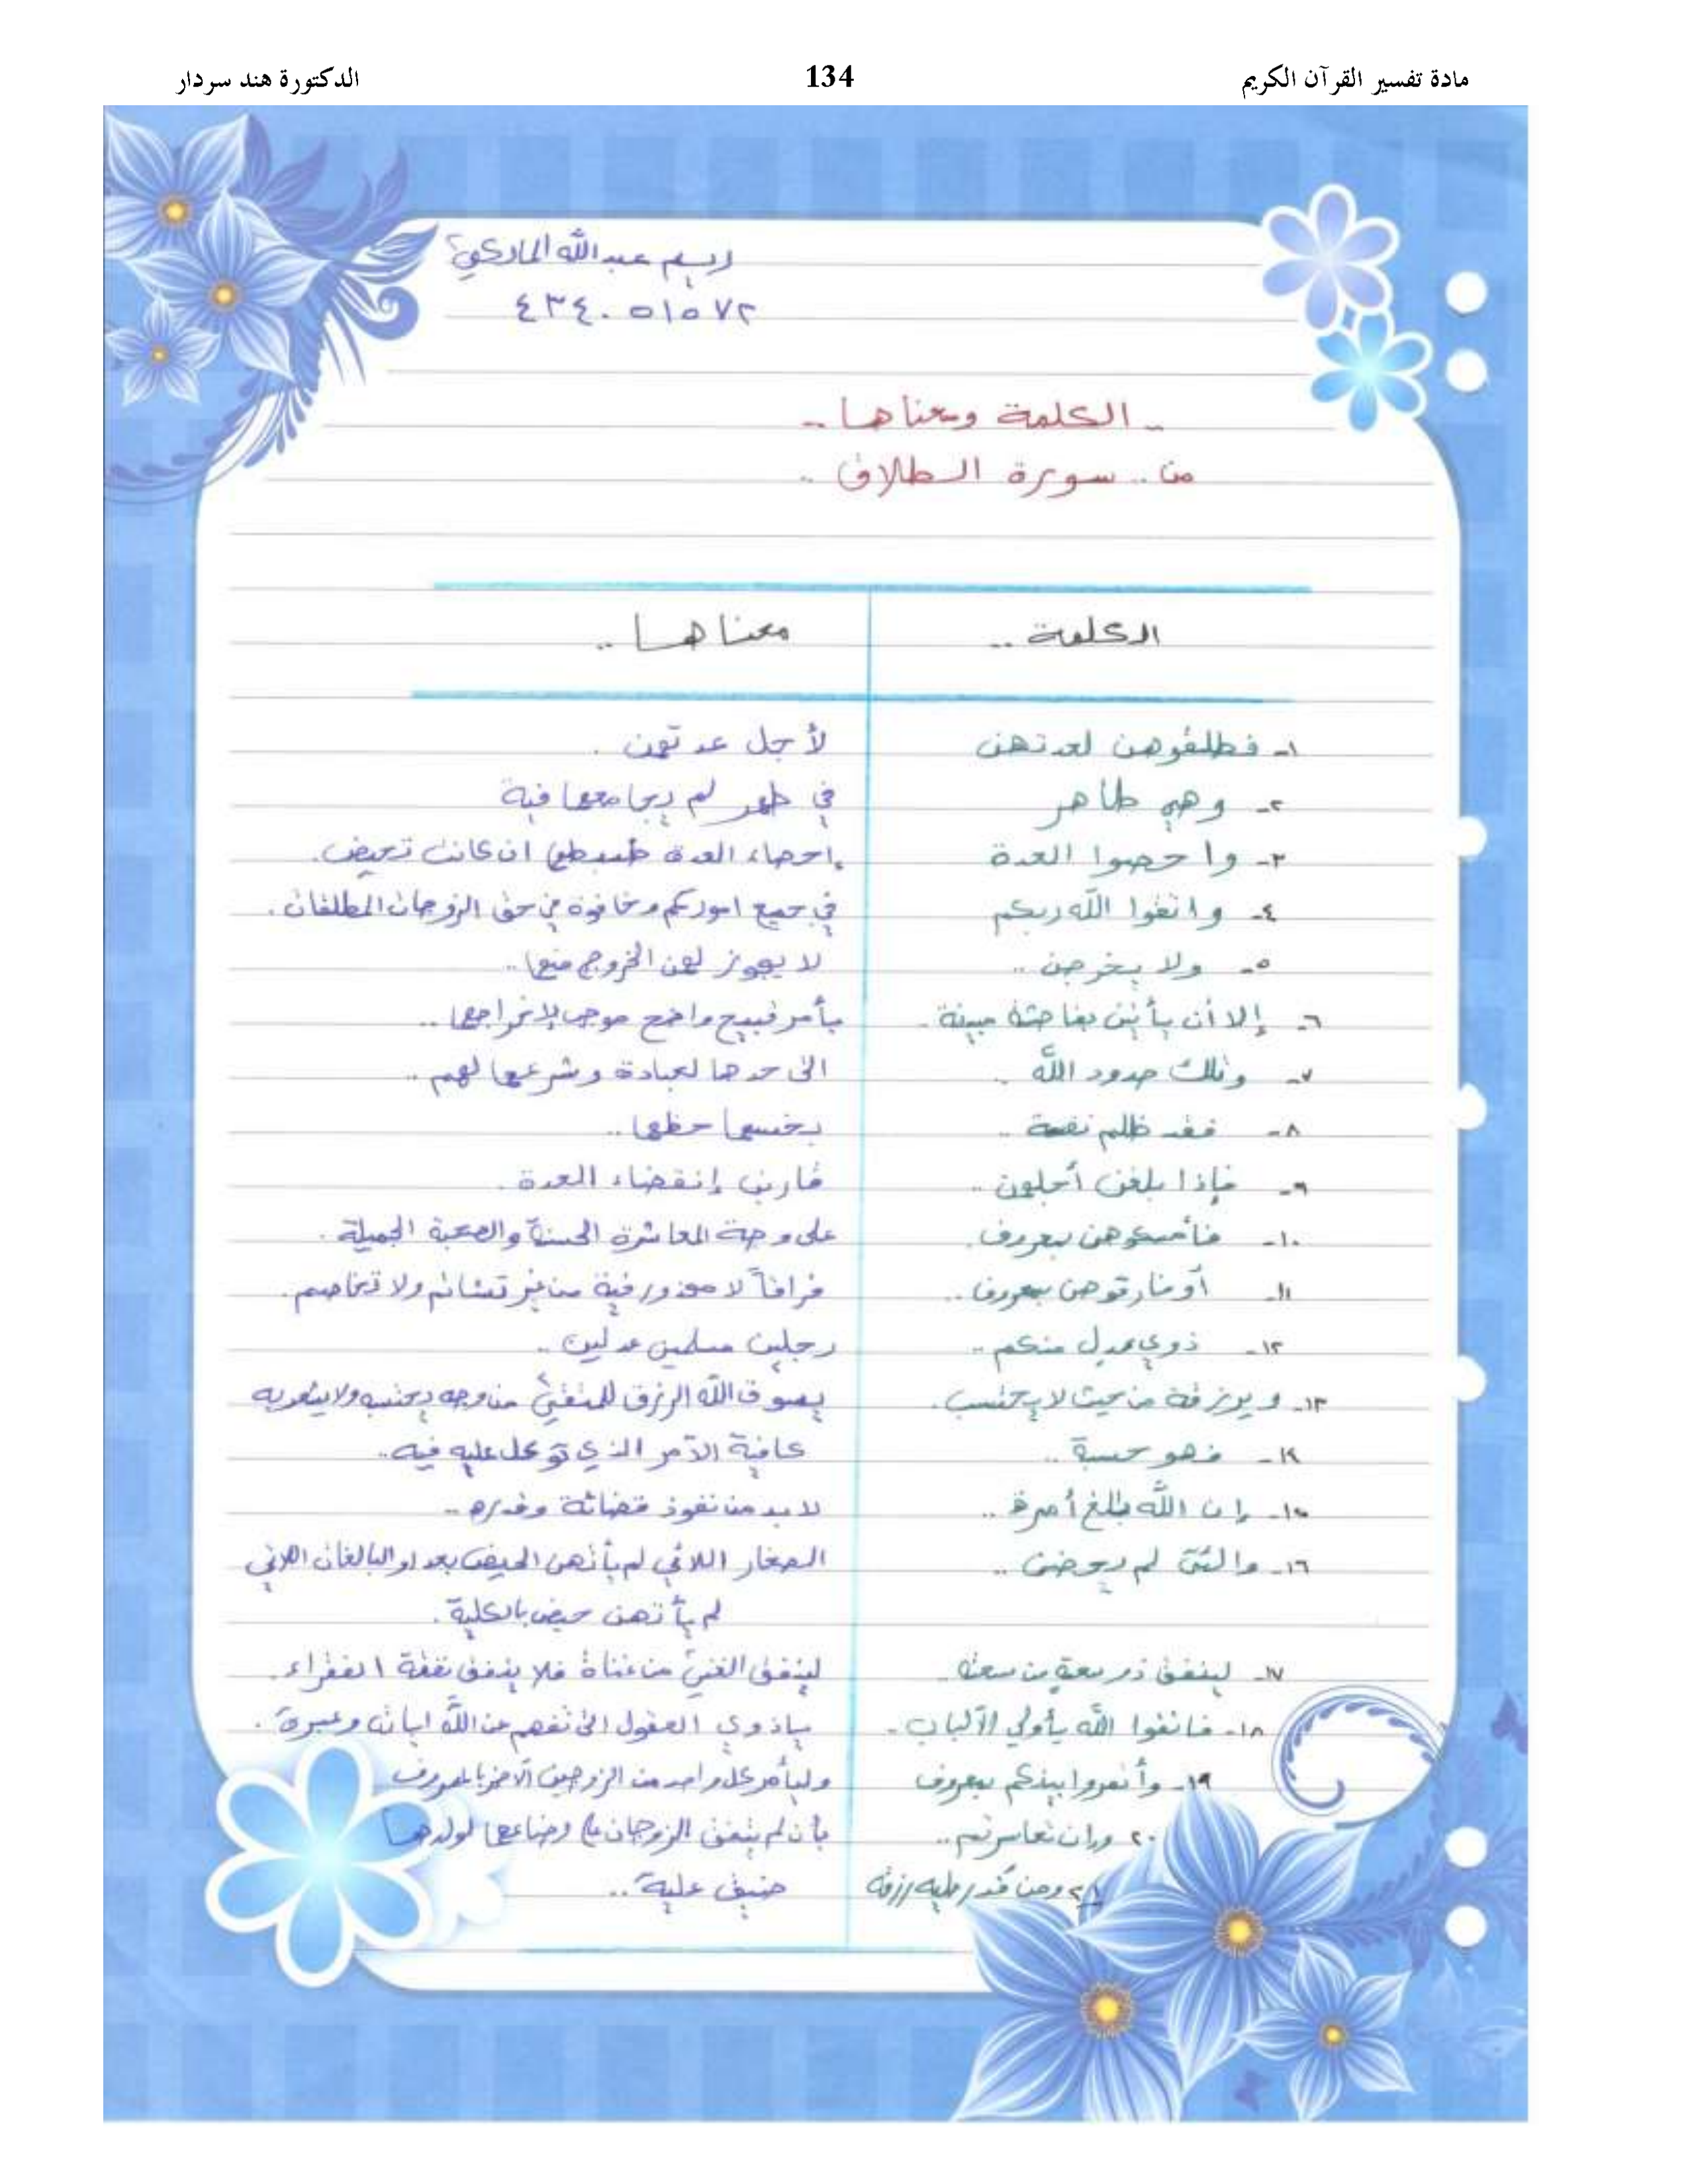 مادة تفسير القرآن الكريم 134 الدكتورة هند سردار
عبدالله المالكي
٤٣٤٠٥١٥٧٢
.. الكلمة ومعناها ..
من .. سورة الطلاق ..
الكلمة .. معناها ..
١- فطلقوهن لعدتهن لأجل عدتهن .
٢- وهي طاهر في طهر لم يجامعها فية
٣- واحصوا العدة احصاء العدة ضبطها ان كانت تحيض.
٤- واتقوا الله ربكم في جميع اموركم وخافوة في حق الزوجات المطلقات .
٥- ولا يخرجن .. لا يجوز لهن الخروج منها ..
٦- إلا أن يأتين بفاحشة مبينة . بأمر قبيح واضح موجب لإخراجها ..
٧- وتلك حدود الله .. التى حدها لعبادة وشرعها لهم ..
٨- فقد ظلم نفسة .. بخسها حظها ..
٩- فإذا بلغن أجلهن .. قاربن إنقضاء العدة .
١٠- فأمسكوهن بمعروف . على وجة المعاشرة الحسنة والصحبة الجميلة .
١١- أو فارقوهن بمعروف .. فراقاً لا محذور فية من غير تشاتم ولا تخاصم .
١٢- ذوي عدل منكم .. رجلين مسلمين عدلين ..
١٣- و يرزقة من حيث لا يحتسب . يسوق الله الرزق للمتقي من وجه لا يحتسبه ولا يشعر به
١٤- فهو حسبة .. كافية الأمر الذي توكل عليه فيه ..
١٥- إن الله بالغ أمرة .. لا بد من نفوذ قضائة وقدره ..
١٦- والئى لم يحضن .. الصغار اللائي لم يأتهن الحيض بعد او البالغات اللاتي
لم يأتهن حيض بالكلية .
١٧- لينفق ذو سعة من سعتة لينفق الغني من غناة فلا ينفق نفقة الفقراء .
١٨- فاتقوا الله يأولي الألباب . ياذوي العقول التى تفهم عن الله اياتة وعبرة .
١٩- وأتمروا بينكم بمعروف وليأمر كل واحد من الزوجين الآخر بالمعروف
٢٠ وإن تعاسرتم .. بأن لم يتفق الزوجان على رضاعها لولدها
٢١ ومن قدر عليه رزقة ضيق علية ..